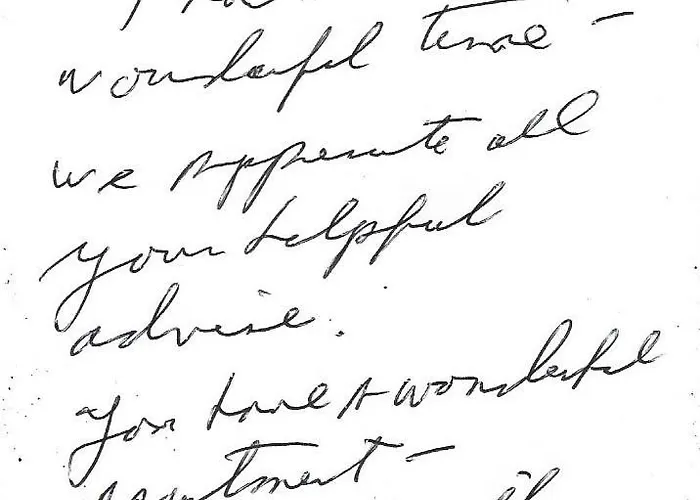 wonderful time -
we appreciate all
your helpful
advise.
you have A wonderful
apartment -